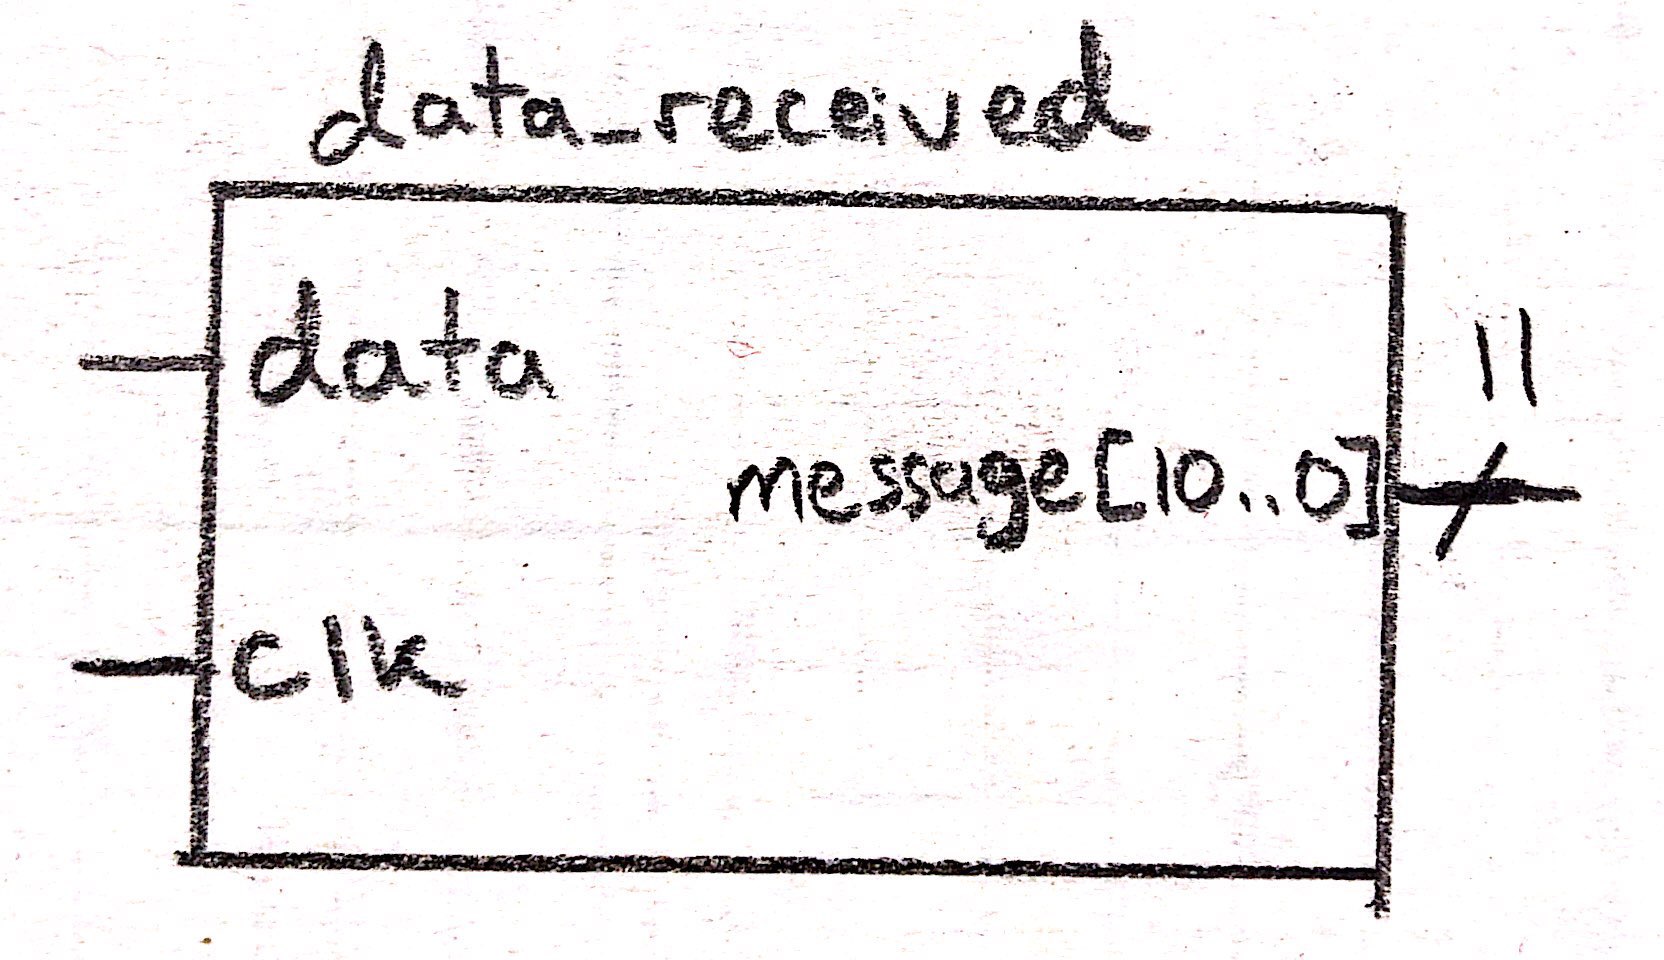 data_received
data
11
message[10..0]
clk